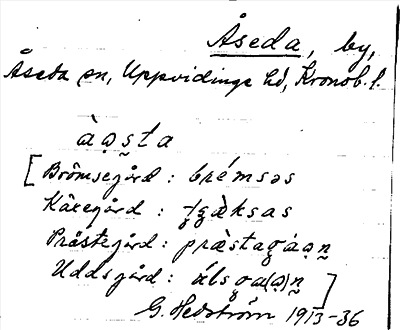 Åseda, by,
Åseda sn, Uppvidinge hd, Kronob. l.
à ạ s̰ t a
[Brömsegård : brémsəs
Käxegård :
Prästegård : præ̀stagáạn̰
Uddsgård : ]
G. Hedström 1913-36